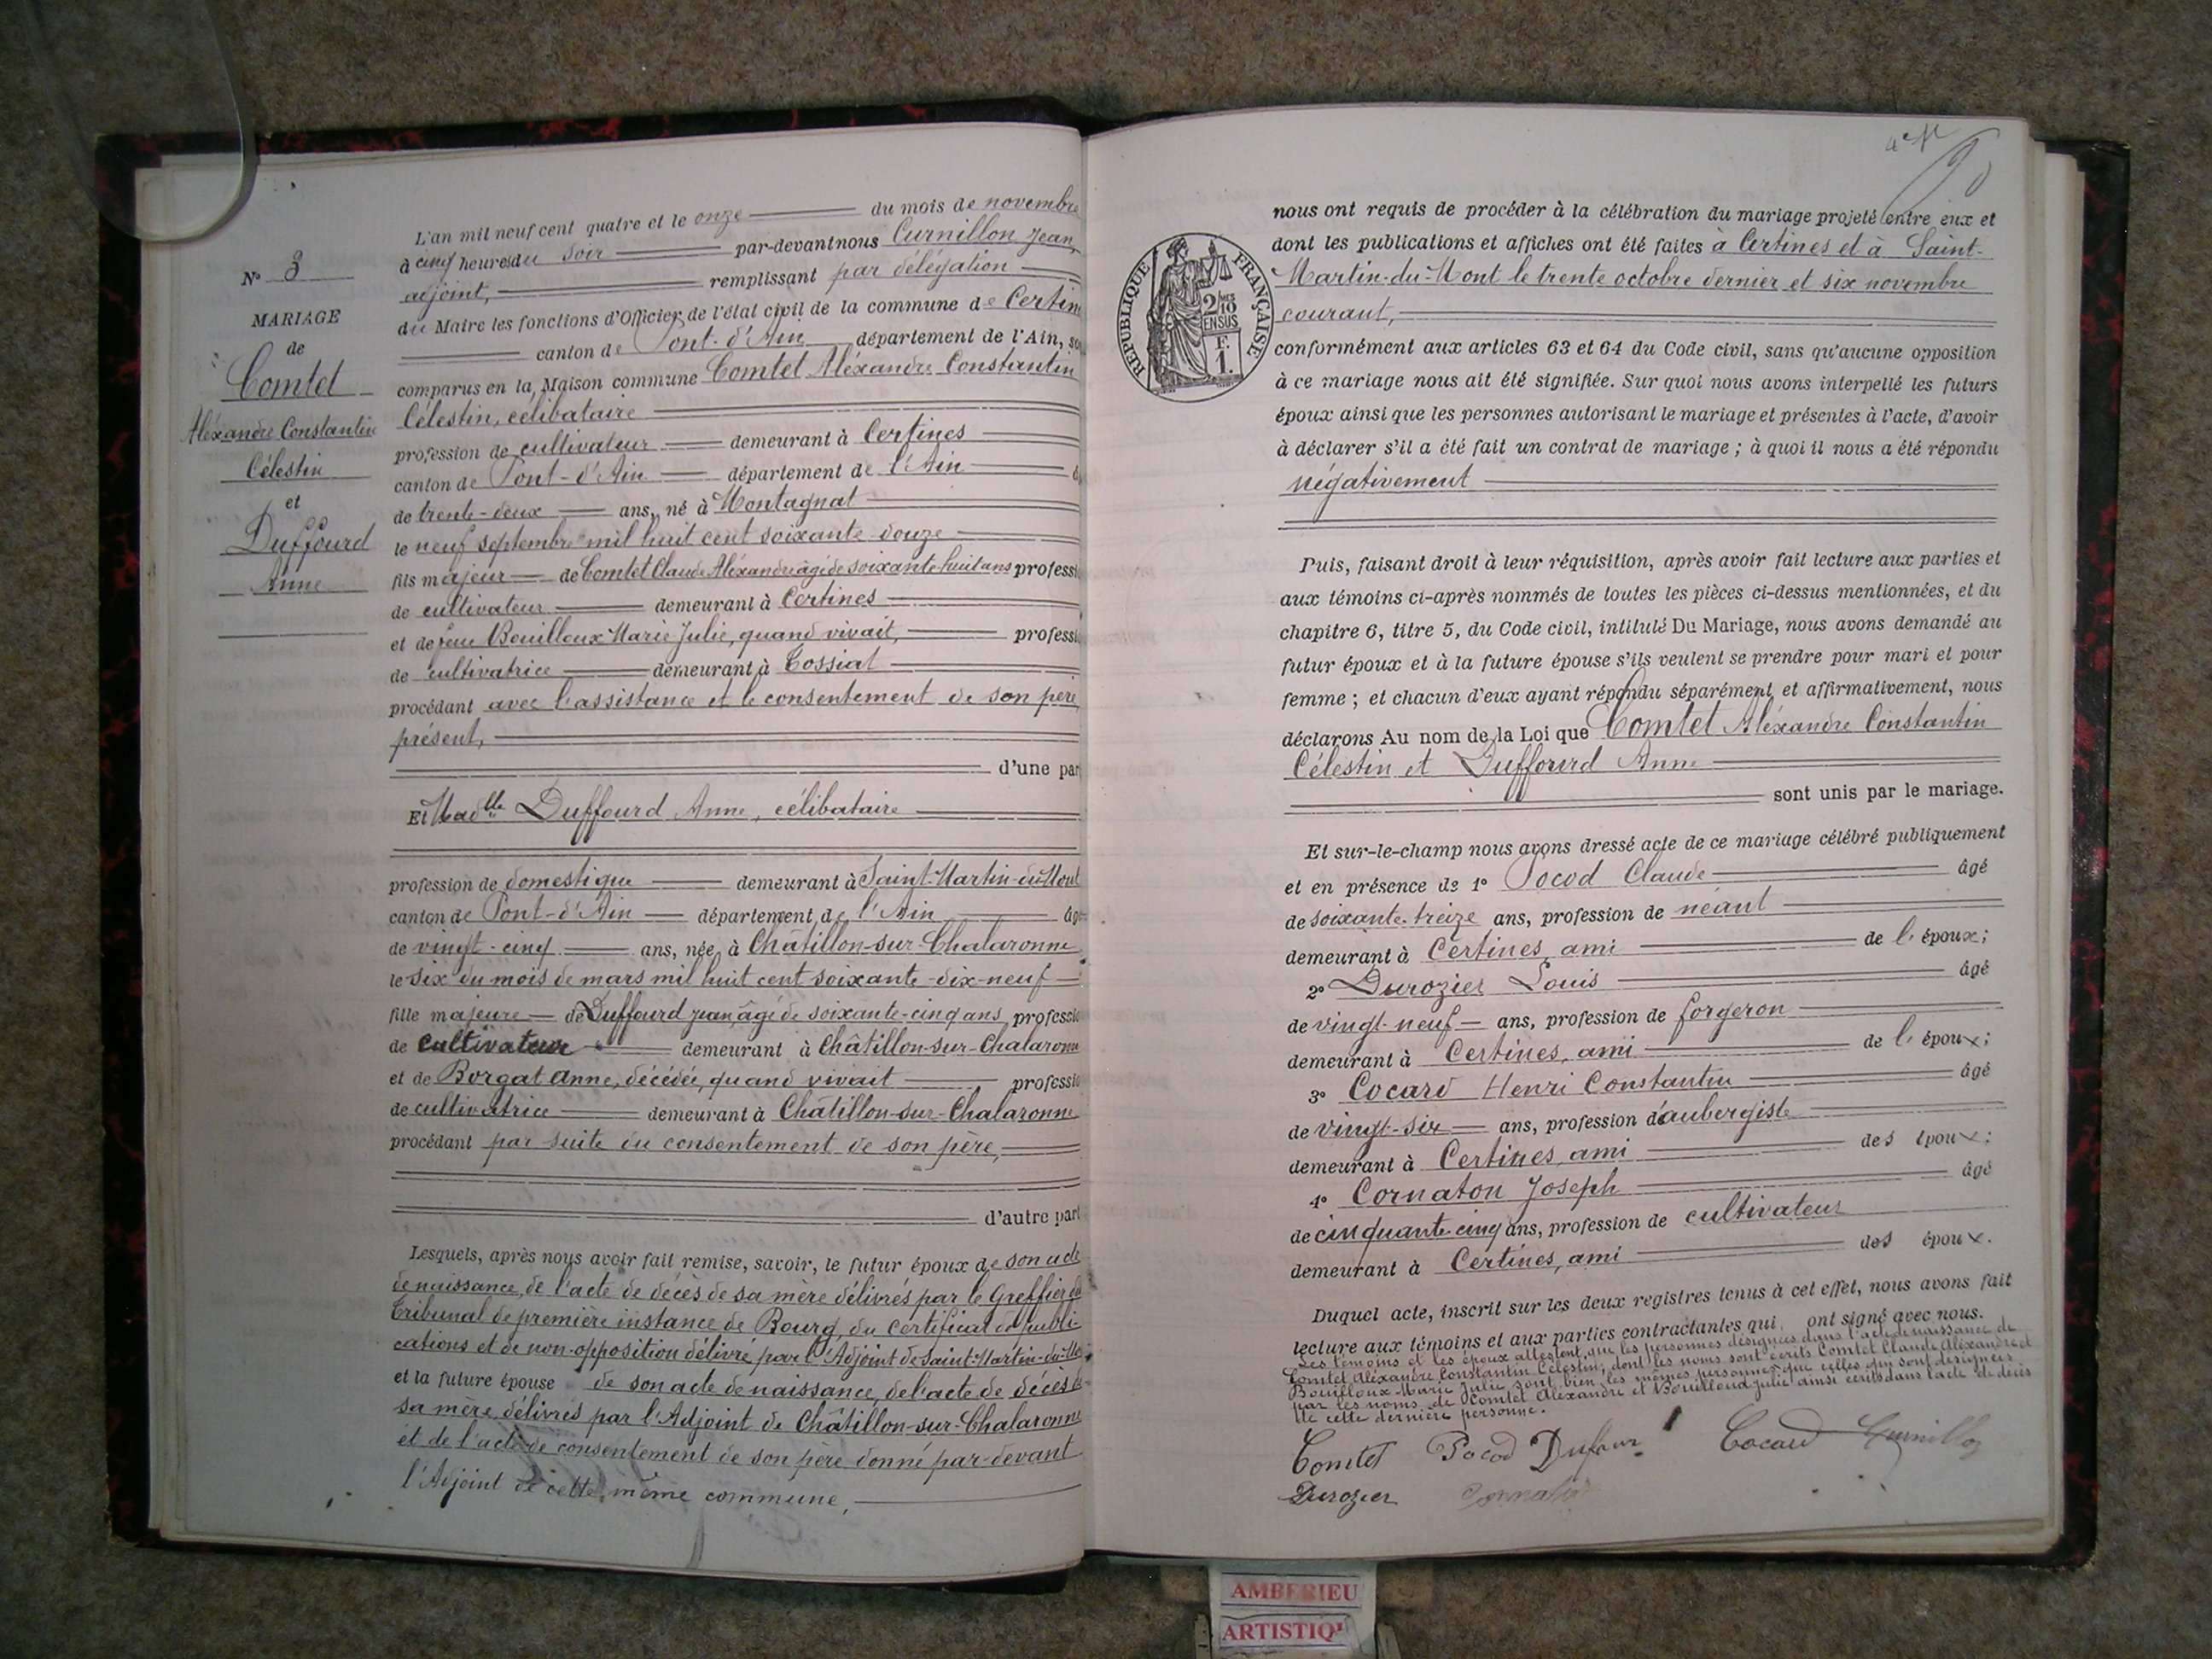 N° 3
MARIAGE
de
Comtet
Aléxandre Constantin
Célestin
et
Duffourd
Anne
L'an mil neuf cent quatre et le onze du mois de novembre
à cinq heures du soir par-devant nous Curnillon Jean,
adjoint, remplissant par délégation
du Maire les fonctions d'Officier de l'état civil de la commune de Certin
canton de Pont-d'Ain département de l'Ain, so
comparus en la Maison commune Comtet Aléxandre Constantin
Célestin, célibataire
profession de cultivateur demeurant à Certines
canton de Pont-d'Ain département de l'Ain
de trente-deux ans, né à Montagnat
le neuf septembre mil huit cent soixante douze
fils majeur de Comtet Claude Aléxandre âgé de soixante huit ans professi
de cultivateur demeurant à Certines
et de feue Bouilloux Marie Julie, quand vivait, professi
de cultivatrice demeurant à Tossiat
procédant avec l'assistance et le consentement de son père
présent,
d'une par
Et Madlle Duffourd Anne, célibataire
profession de domestique demeurant à Saint-Martin-du-Mont
canton de Pont-d'Ain département de l'Ain âg
de vingt-cinq ans, née à Châtillon-sur-Chalaronne
le six du mois de mars mil huit cent soixante-dix-neuf
fille majeure de Duffourd Jean, âgé de soixante-cinq ans, professio
de cultivateur demeurant à Châtillon-sur-Chalaronn
et de Borgat Anne, décédée, quand vivait professio
de cultivatrice demeurant à Châtillon-sur-Chalaronne
procédant par suite du consentement de son père,
d'autre part
Lesquels, après nous avoir fait remise, savoir, le futur époux de son acte
de naissance, de l'acte de décès de sa mère délivrés par le Greffier du
Tribunal de première instance de Bourg, du certificat de publi-
cations et de non-opposition délivré par l'Adjoint de Saint-Martin-du-Mo
et la future épouse de son acte de naissance, de l'acte de décès de
sa mère délivrés par l'Adjoint de Châtillon-sur-Chalaronne
et de l'acte de consentement de son père donné par-devant
l'Adjoint de cette même commune,
RÉPUBLIQUE FRANÇAISE
2/10 EN SUS
F. 1.
nous ont requis de procéder à la célébration du mariage projeté entre eux et
dont les publications et affiches ont été faites à Certines et à Saint-
Martin-du-Mont le trente octobre dernier et six novembre
courant,
conformément aux articles 63 et 64 du Code civil, sans qu'aucune opposition
à ce mariage nous ait été signifiée. Sur quoi nous avons interpellé les futurs
époux ainsi que les personnes autorisant le mariage et présentes à l'acte, d'avoir
à déclarer s'il a été fait un contrat de mariage ; à quoi il nous a été répondu
négativement
Puis, faisant droit à leur réquisition, après avoir fait lecture aux parties et
aux témoins ci-après nommés de toutes les pièces ci-dessus mentionnées, et du
chapitre 6, titre 5, du Code civil, intitulé Du Mariage, nous avons demandé au
futur époux et à la future épouse s'ils veulent se prendre pour mari et pour
femme ; et chacun d'eux ayant répondu séparément et affirmativement, nous
déclarons Au nom de la Loi que Comtet Aléxandre Constantin
Célestin et Duffourd Anne
sont unis par le mariage.
Et sur-le-champ nous avons dressé acte de ce mariage célébré publiquement
et en présence de 1° Pocod Claude âgé
de soixante-treize ans, profession de néant
demeurant à Certines, ami de l'époux ;
2° Durozier Louis âgé
de vingt-neuf ans, profession de forgeron
demeurant à Certines, ami de l'époux ;
3° Cocard Henri Constantin âgé
de vingt-six ans, profession d'aubergiste
demeurant à Certines, ami des époux ;
4° Cornaton Joseph âgé
de cinquante-cinq ans, profession de cultivateur
demeurant à Certines, ami des époux.
Duquel acte, inscrit sur les deux registres tenus à cet effet, nous avons fait
lecture aux témoins et aux parties contractantes qui ont signé avec nous.
Les témoins et les époux attestent que les personnes désignées dans l'acte de naissance de
Comtet Aléxandre Constantin Célestin, dont les noms sont écrits Comtet Claude Aléxandre et
Bouilloux Marie Julie, sont bien les mêmes personnes que celles qui sont désignées
par les noms de Comtet Aléxandre et Bouilloud Julie ainsi écrits dans l'acte de décès
de cette dernière personne.
Comtet Pocod Dufour Cocard Curnillon
Durozier Cornaton
AMBERIEU
ARTISTIQ